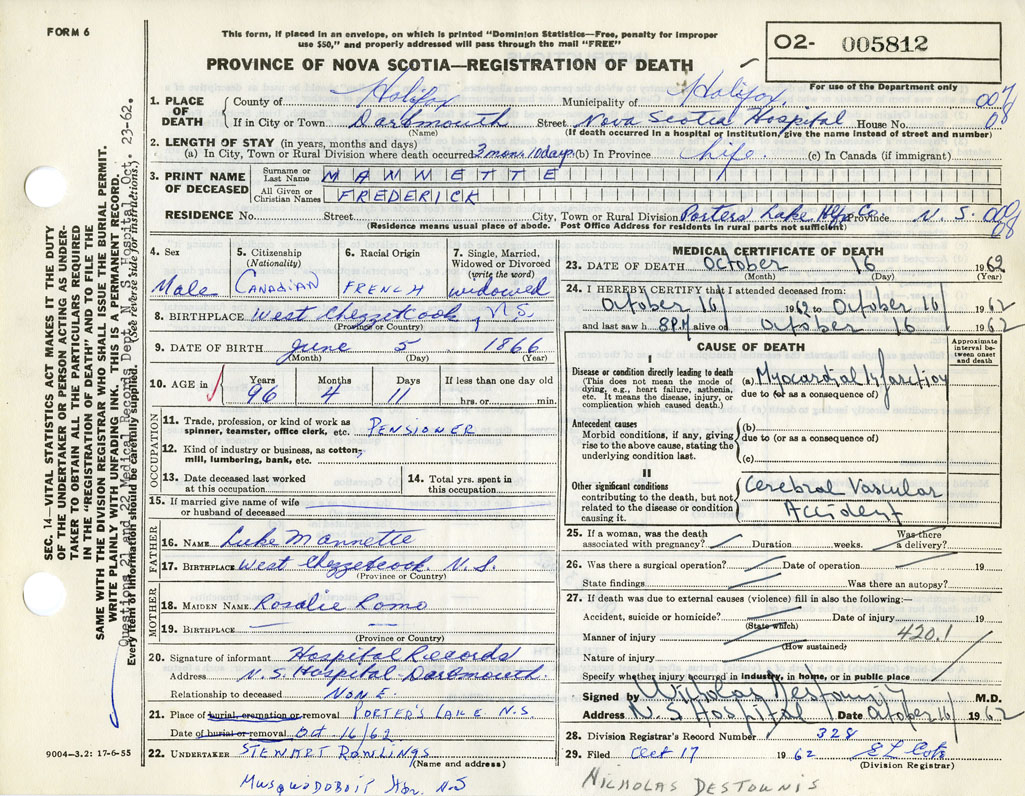 FORM 6
This form, if placed in an envelope, on which is printed "Dominion Statistics—Free, penalty for improper
use $50," and properly addressed will pass through the mail "FREE"
PROVINCE OF NOVA SCOTIA—REGISTRATION OF DEATH
02- 005812
For use of the Department only
1. PLACE OF DEATH
County of Halifax Municipality of Halifax.
If in City or Town Dartmouth Street Nova Scotia Hospital House No.
(Name) (If death occurred in a hospital or institution, give the name instead of street and number)
2. LENGTH OF STAY (in years, months and days)
(a) In City, Town or Rural Division where death occurred 3 mons. 10 days (b) In Province Life. (c) In Canada (if immigrant)
3. PRINT NAME OF DECEASED
Surname or Last Name MANNETTE
All Given or Christian Names FREDERICK
RESIDENCE No. Street City, Town or Rural Division Porters Lake Hfx Co. Province N. S.
(Residence means usual place of abode. Post Office Address for residents in rural parts not sufficient)
4. Sex
Male
5. Citizenship
(Nationality)
CANADIAN
6. Racial Origin
FRENCH
7. Single, Married,
Widowed or Divorced
(write the word)
widowed
8. BIRTHPLACE West Chezzetcook, N.S.
(Province or Country)
9. DATE OF BIRTH June 5 1866
(Month) (Day) (Year)
10. AGE in
Years Months Days If less than one day old
96 4 11 hrs. or min.
OCCUPATION
11. Trade, profession, or kind of work as
spinner, teamster, office clerk, etc. PENSIONER
12. Kind of industry or business, as cotton-
mill, lumbering, bank, etc.
13. Date deceased last worked
at this occupation
14. Total yrs. spent in
this occupation
15. If married give name of wife
or husband of deceased
FATHER
16. NAME Luke Mannette
17. BIRTHPLACE West Chezzetcook N.S.
(Province or Country)
MOTHER
18. MAIDEN NAME Rosalie Romo
19. BIRTHPLACE —
(Province or Country)
20. Signature of informant Hospital Records
Address N.S. Hospital Dartmouth.
Relationship to deceased NONE.
21. Place of burial, cremation or removal PORTER'S LAKE N.S
Date of burial or removal Oct 16/62
22. UNDERTAKER STEWART ROWLINGS
(Name and address)
Musquodoboit Hbr. N.S
9004—3.2: 17-6-55
MEDICAL CERTIFICATE OF DEATH
23. DATE OF DEATH October 16 1962
(Month) (Day) (Year)
24. I HEREBY CERTIFY that I attended deceased from:
October 16 1962 to October 16 1962
and last saw h 8 P.M alive on October 16 1962
CAUSE OF DEATH
Approximate interval between onset and death
I
Disease or condition directly leading to death
(This does not mean the mode of
dying, e.g., heart failure, asthenia,
etc. It means the disease, injury, or
complication which caused death.)
(a) Myocardial Infarction
due to (or as a consequence of)
Antecedent causes
Morbid conditions, if any, giving
rise to the above cause, stating the
underlying condition last.
(b)
due to (or as a consequence of)
(c)
II
Other significant conditions
contributing to the death, but not
related to the disease or condition
causing it.
Cerebral Vascular
Accident
25. If a woman, was the death
associated with pregnancy? Duration weeks. Was there
a delivery?
26. Was there a surgical operation? Date of operation 19
State findings Was there an autopsy?
27. If death was due to external causes (violence) fill in also the following:—
Accident, suicide or homicide? Date of injury 19
(State which)
420.1
Manner of injury
(How sustained)
Nature of injury
Specify whether injury occurred in industry, in home, or in public place
Signed by Nicholas Destounis M.D.
Address N S Hospital Date October 16/ 1962
28. Division Registrar's Record Number 328
29. Filed Oct 17 1962
(Division Registrar)
NICHOLAS DESTOUNIS
SEC. 14—VITAL STATISTICS ACT MAKES IT THE DUTY
OF THE UNDERTAKER OR PERSON ACTING AS UNDER-
TAKER TO OBTAIN ALL THE PARTICULARS REQUIRED
IN THE "REGISTRATION OF DEATH" AND TO FILE THE
SAME WITH THE DIVISION REGISTRAR WHO SHALL ISSUE THE BURIAL PERMIT.
WRITE PLAINLY WITH UNFADING INK. THIS IS A PERMANENT RECORD.
Questions 21 and 22 Medical Records Dept. N.S. Hospital Oct. 23-62.
Every item of information should be carefully supplied. (See reverse side for instructions.)